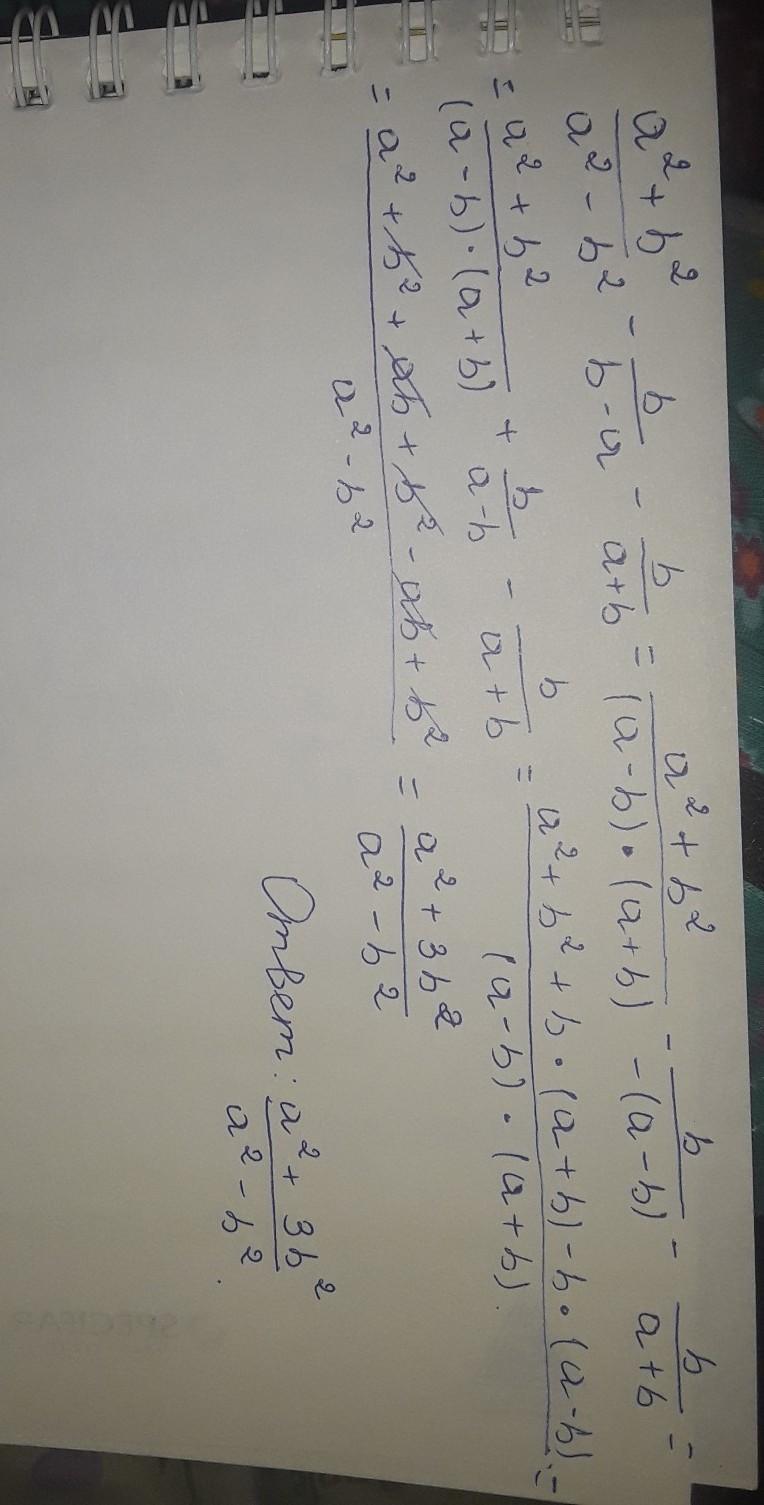 a² + b² / a² - b² - b / b - a - b / a+b = a² + b² / (a-b)·(a+b) - b / -(a-b) - b / a+b =
= a² + b² / (a-b)·(a+b) + b / a-b - b / a+b = a² + b² + b·(a+b) - b·(a-b) / (a-b)·(a+b) =
= a² + b² + ab + b² - ab + b² / a² - b² = a² + 3b² / a² - b²
Ответ: a² + 3b² / a² - b².